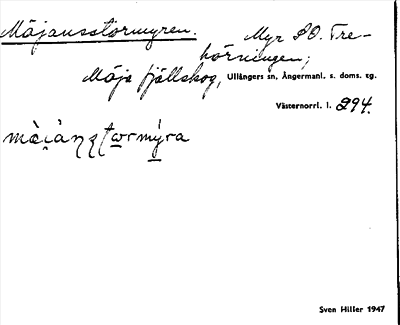 Mäjansstormyren. Myr SO. Tre-
hörningen;
Mäja fjällskog, Ullångers sn, Ångermanl. s. doms. tg.
Västernorrl. l. 294.
Sven Hiller 1947